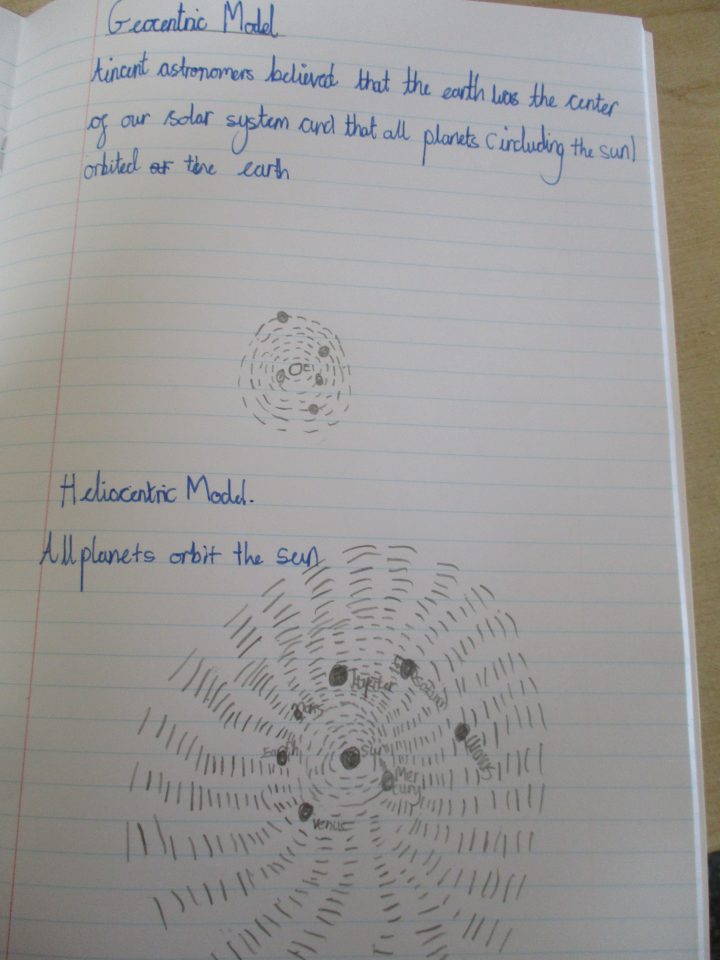 Geocentric Model
Aincent astronomers believed that the earth was the center
of our solar system and that all planets (including the sun)
orbited the earth
Heliocentric Model.
All planets orbit the sun
Jupiter
Mars
Earth
Sun
Uranus
Mer
cury
Venus